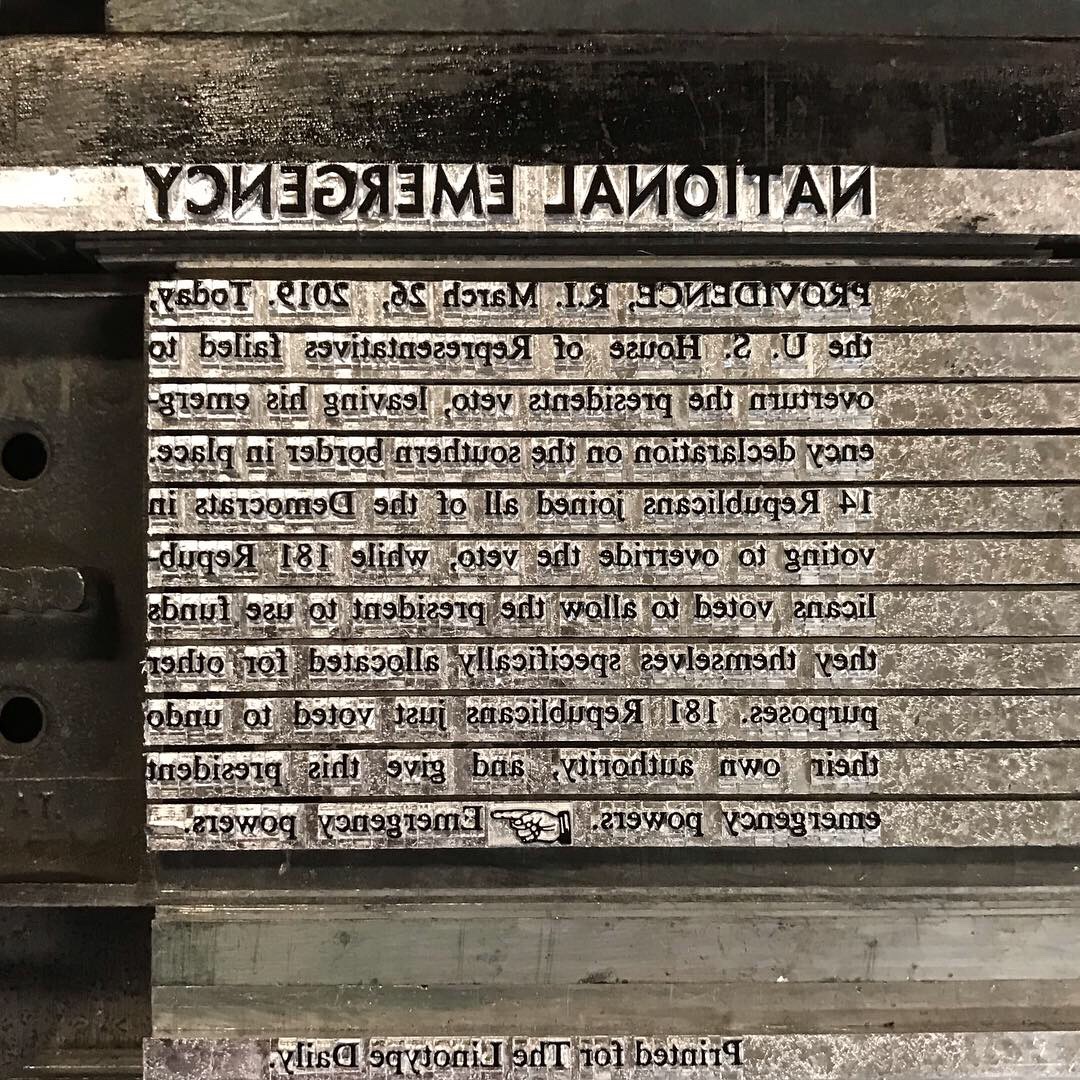 NATIONAL EMERGENCY
PROVIDENCE, R.I. March 26, 2019. Today,
the U. S. House of Representatives failed to
overturn the presidents veto, leaving his emerg-
ency declaration on the southern border in place.
14 Republicans joined all of the Democrats in
voting to override the veto, while 181 Repub-
licans voted to allow the president to use funds
they themselves specifically allocated for other
purposes. 181 Republicans just voted to undo
their own authority, and give this president
emergency powers. ☞ Emergency powers.
Printed for The Linotype Daily.